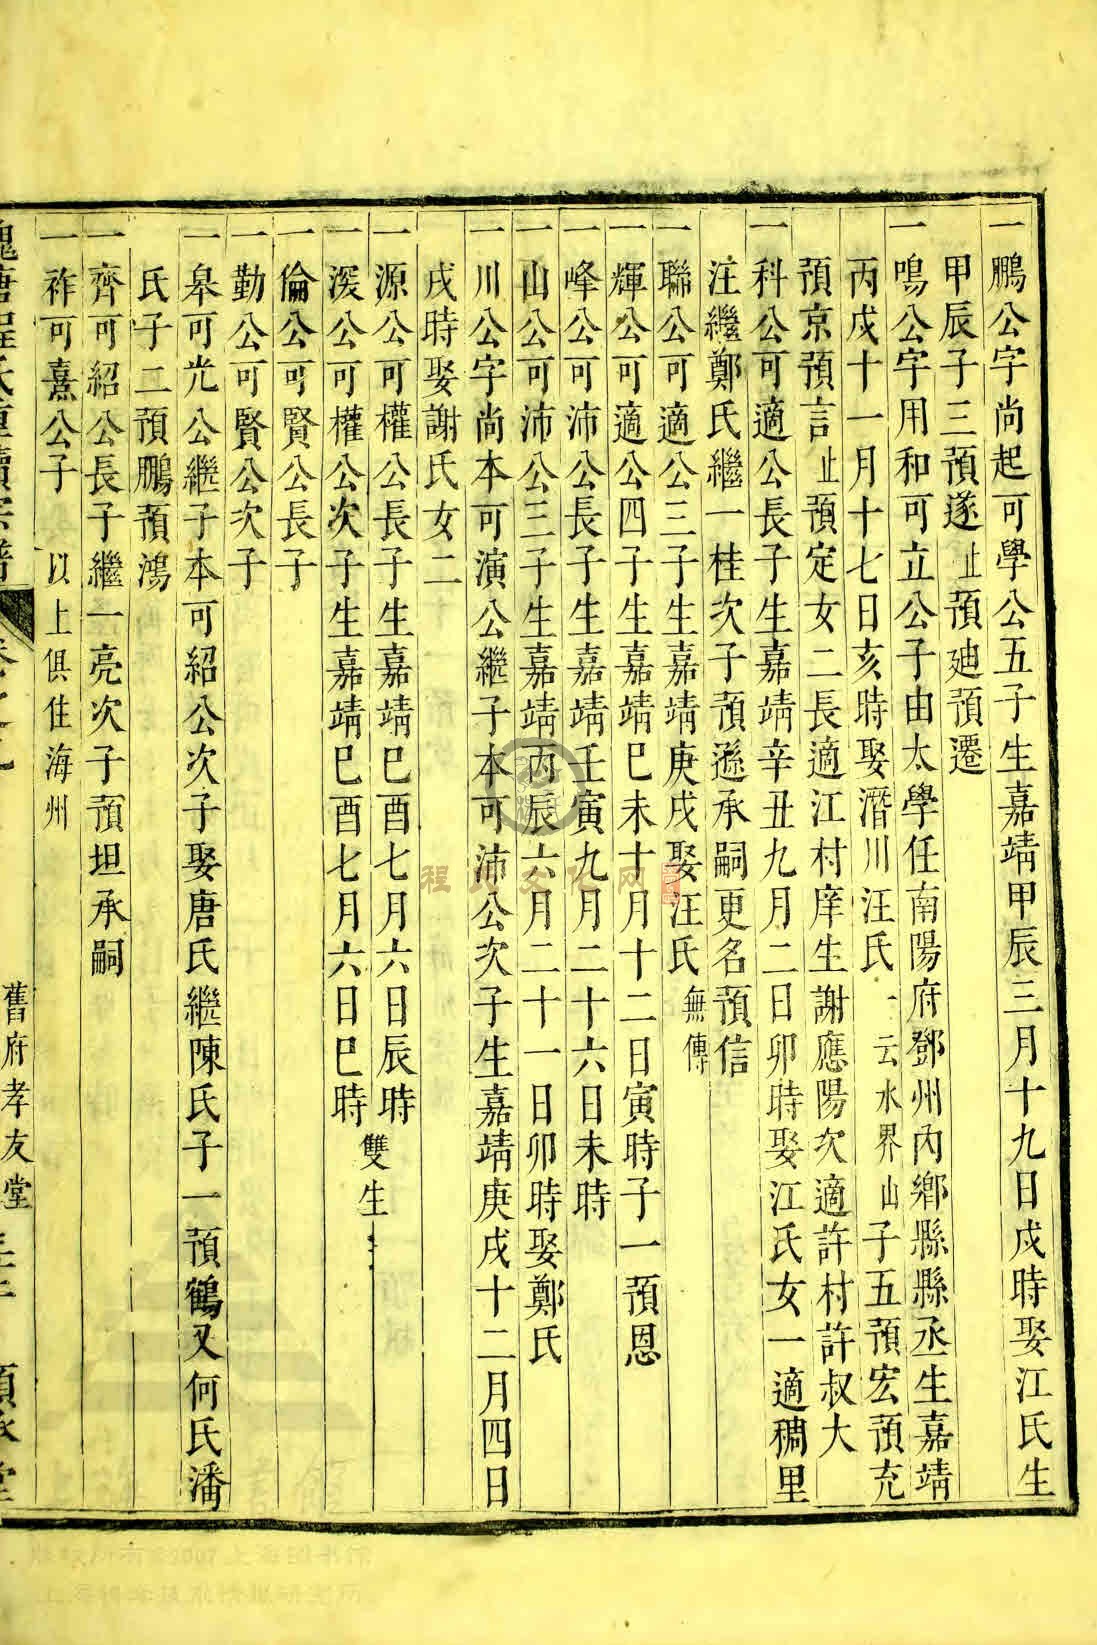 一鵬公字尚起可學公五子生嘉靖甲辰三月十九日戌時娶江氏生
甲辰子三預遂止預廸預遷
一鳴公字用和可立公子由太學任南陽府鄧州內鄉縣縣丞生嘉靖
丙戌十一月十七日亥時娶潛川汪氏一云水界山子五預宏預充
預京預言止預定女二長適江村庠生謝應陽次適許村許叔大
一科公可適公長子生嘉靖辛丑九月二日卯時娶江氏女一適稠里
汪繼鄭氏繼一桂次子預遜承嗣更名預信
一聯公可適公三子生嘉靖庚戌娶汪氏無傳
一輝公可適公四子生嘉靖巳未十月十二日寅時子一預恩
一峰公可沛公長子生嘉靖壬寅九月二十六日未時
一山公可沛公三子生嘉靖丙辰六月二十一日卯時娶鄭氏
一川公字尚本可演公繼子本可沛公次子生嘉靖庚戌十二月四日
戌時娶謝氏女二
一源公可權公長子生嘉靖巳酉七月六日辰時
一深公可權公次子生嘉靖巳酉七月六日巳時
雙生
一倫公可賢公長子
一勤公可賢公次子
一皋可光公繼子本可紹公次子娶唐氏繼陳氏子一預鶴又何氏潘
氏子二預鵬預鴻
一齊可紹公長子繼一亮次子預坦承嗣
一祚可熹公子以上俱住海州
舊府孝友堂
程氏文化网
版权所有©2007上海图书馆